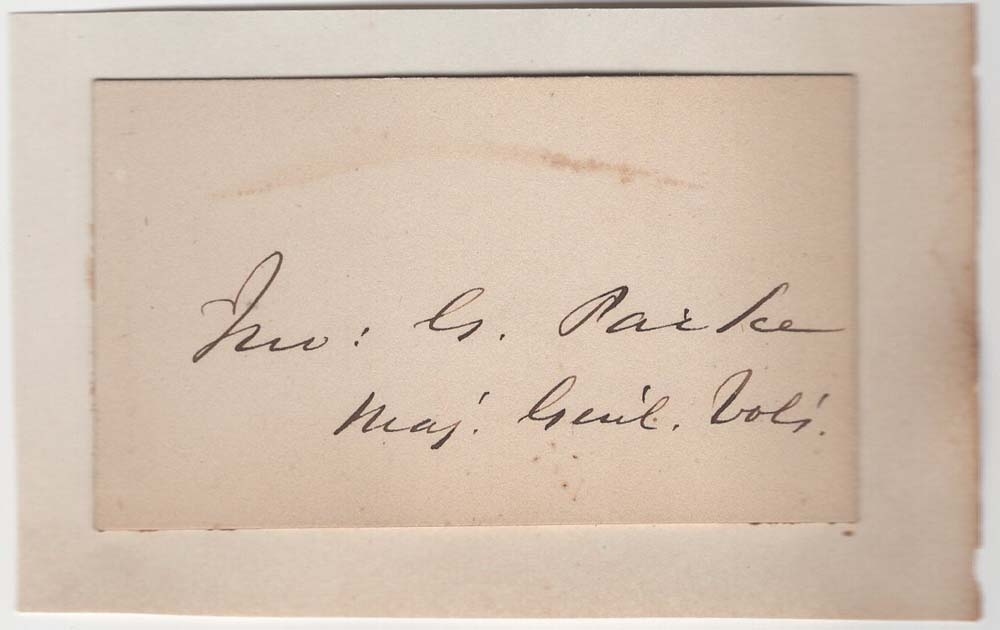 Jno: G. Parke
Maj. Genl. Vols.